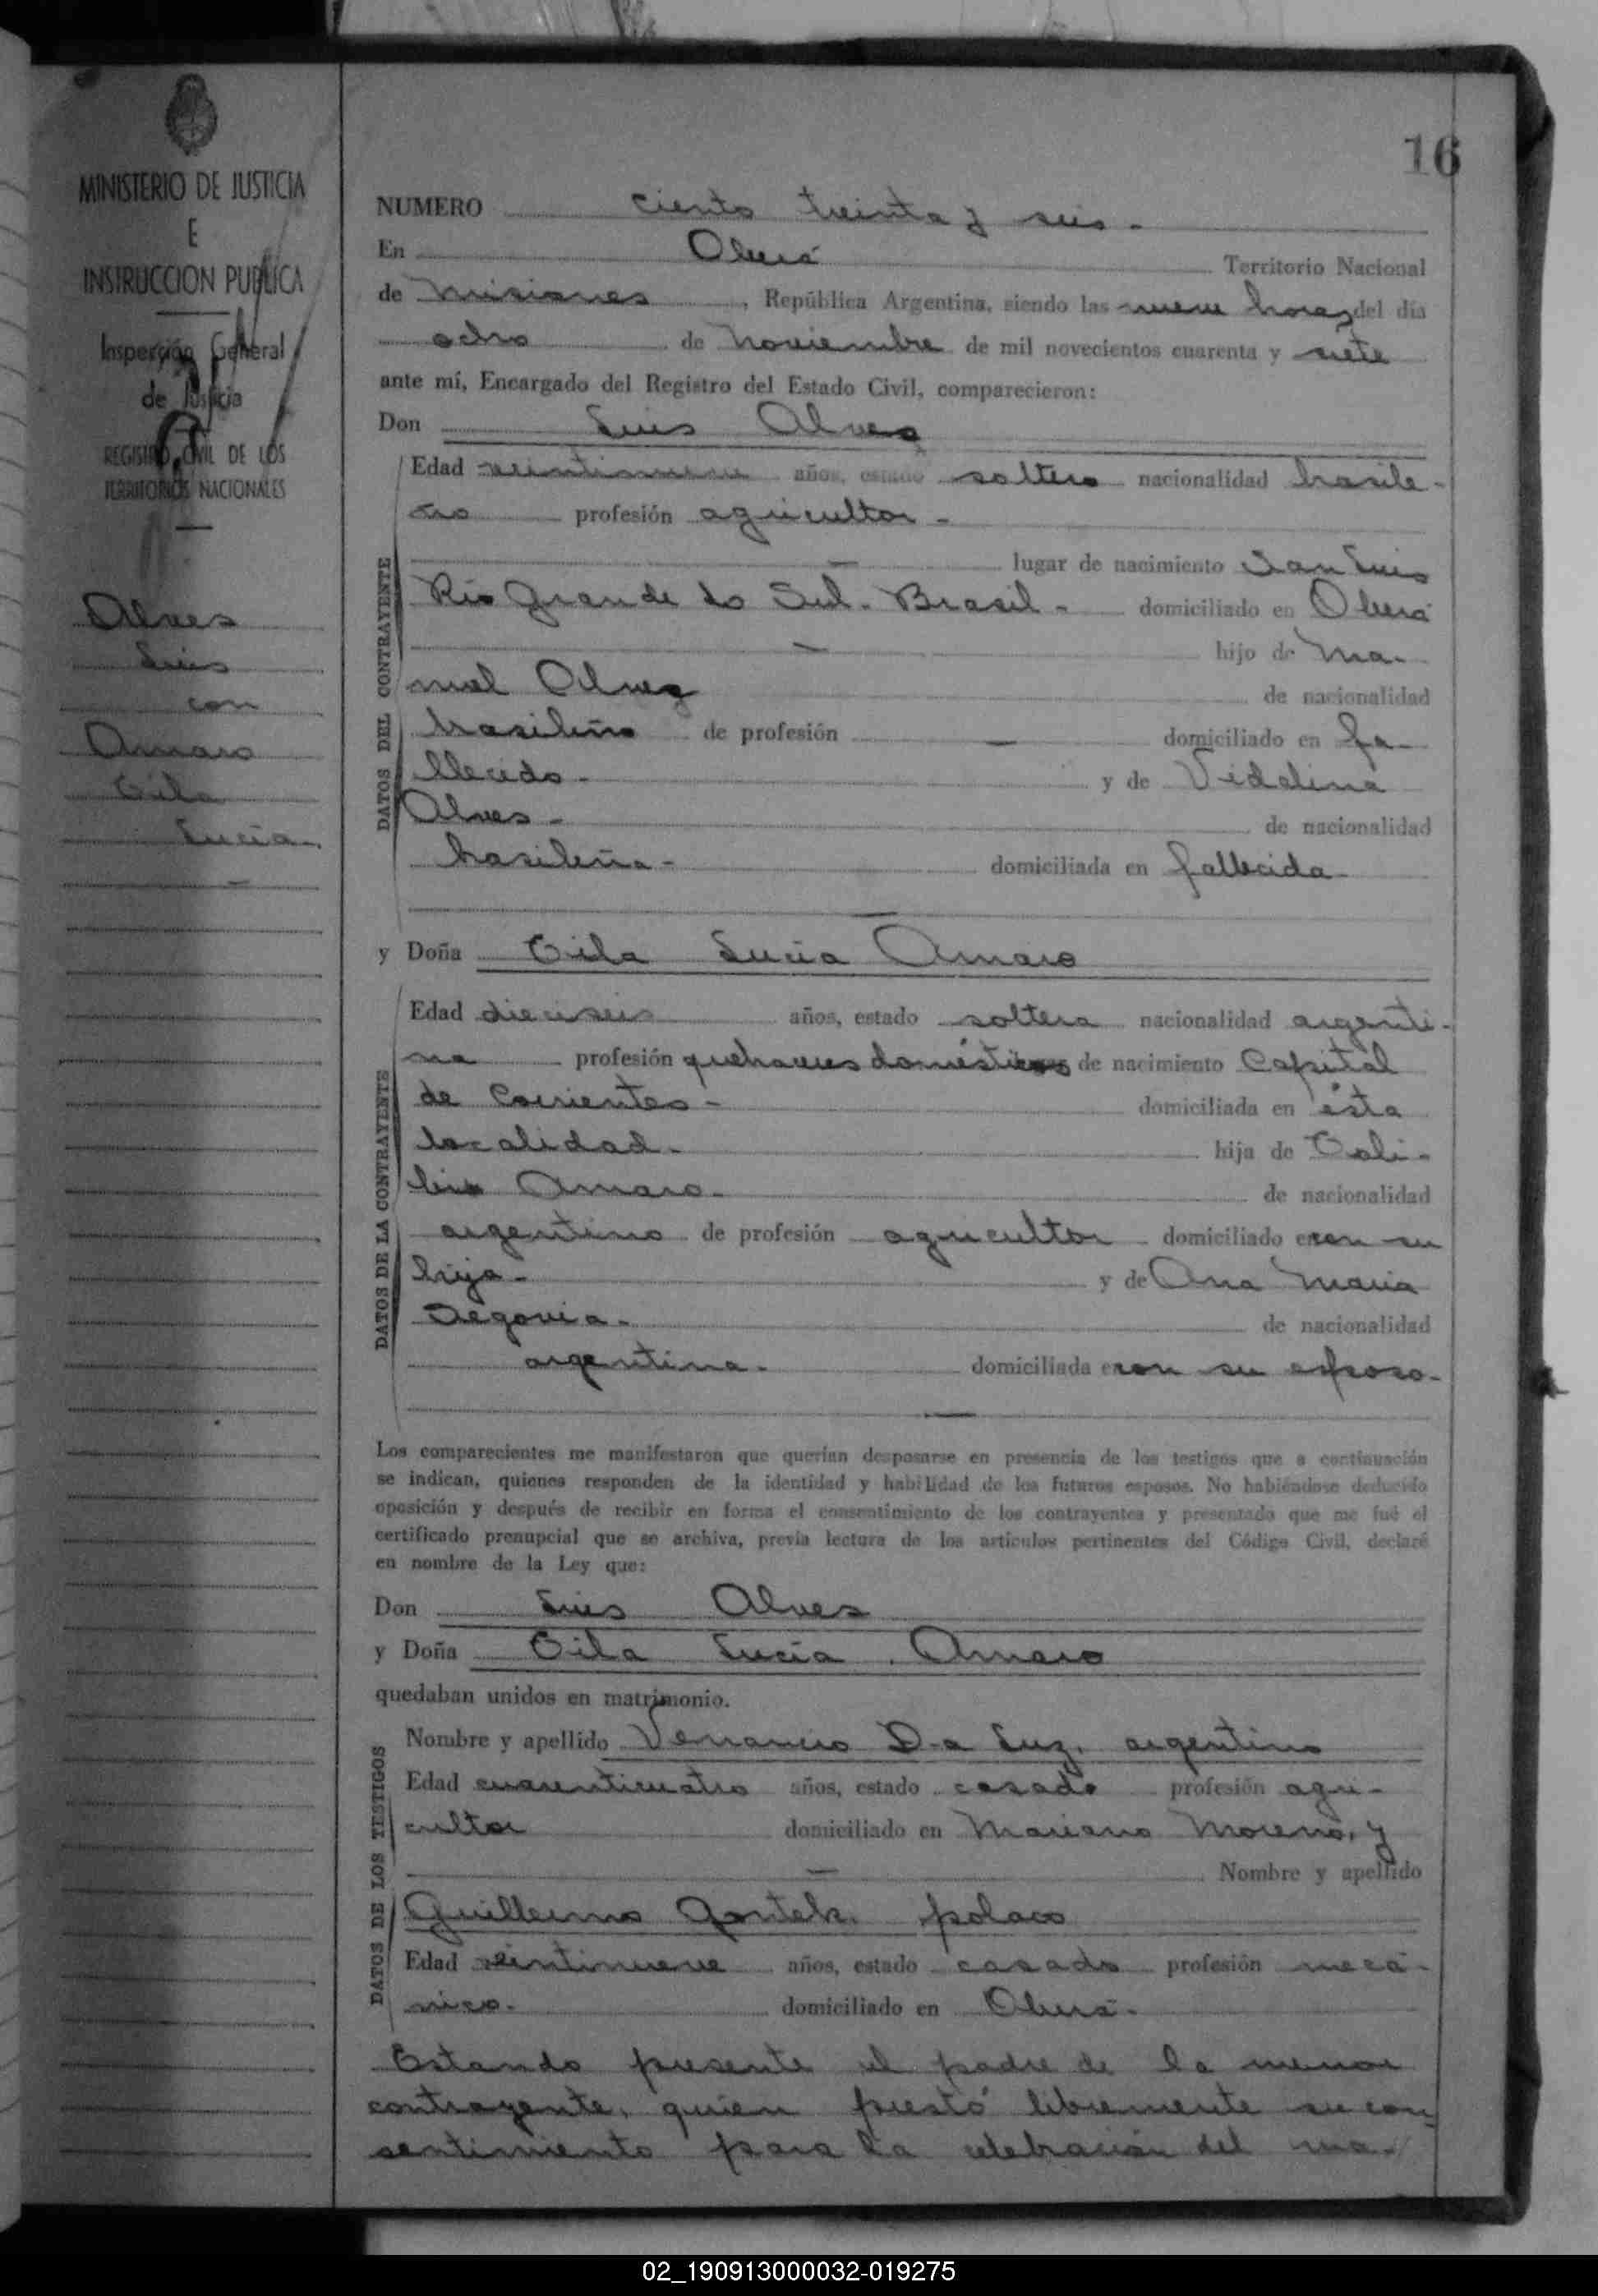 16
MINISTERIO DE JUSTICIA
E
INSTRUCCION PUBLICA
Inspección General
de Justicia
REGISTRO CIVIL DE LOS
TERRITORIOS NACIONALES
Alves
Luis
con
Amaro
Eila
Lucía.
NUMERO ciento treinta y seis.
En Oberá Territorio Nacional
de Misiones, República Argentina, siendo las nueve horas del día
ocho de Noviembre de mil novecientos cuarenta y siete
ante mí, Encargado del Registro del Estado Civil, comparecieron:
Don Luis Alves
DATOS DEL CONTRAYENTE
Edad veintinueve años, estado soltero nacionalidad brasile-
ño profesión agricultor -
lugar de nacimiento San Luis
Rio Grande do Sul - Brasil - domiciliado en Oberá
hijo de Ma-
nuel Alves de nacionalidad
brasileño de profesión — domiciliado en fa-
llecido - y de Vidalina
Alves - de nacionalidad
brasileña - domiciliada en fallecida -
y Doña Eila Lucia Amaro
DATOS DE LA CONTRAYENTE
Edad dieciseis años, estado soltera nacionalidad argenti-
na profesión quehaceres domésticos de nacimiento Capital
de Corrientes - domiciliada en ésta
localidad - hija de
Amaro - de nacionalidad
argentino de profesión agricultor domiciliado con su
hija - y de Ana Maria
Segovia - de nacionalidad
argentina - domiciliada con su esposo -
Los comparecientes me manifestaron que querían desposarse en presencia de los testigos que a continuación
se indican, quienes responden de la identidad y habilidad de los futuros esposos. No habiéndose deducido
oposición y después de recibir en forma el consentimiento de los contrayentes y presentado que me fué el
certificado prenupcial que se archiva, previa lectura de los artículos pertinentes del Código Civil, declaré
en nombre de la Ley que:
Don Luis Alves
y Doña Eila Lucía Amaro
quedaban unidos en matrimonio.
DATOS DE LOS TESTIGOS
Nombre y apellido Venancio Da Luz, argentino
Edad cuarenticuatro años, estado casado profesión agri-
cultor domiciliado en Mariano Moreno, y
Nombre y apellido
Guillermo Gontek, polaco
Edad veintinueve años, estado casado profesión mecá-
nico - domiciliado en Oberá -
Estando presente el padre de la menor
contrayente, quien prestó libremente su con-
sentimiento para la celebración del ma-
02_190913000032-019275